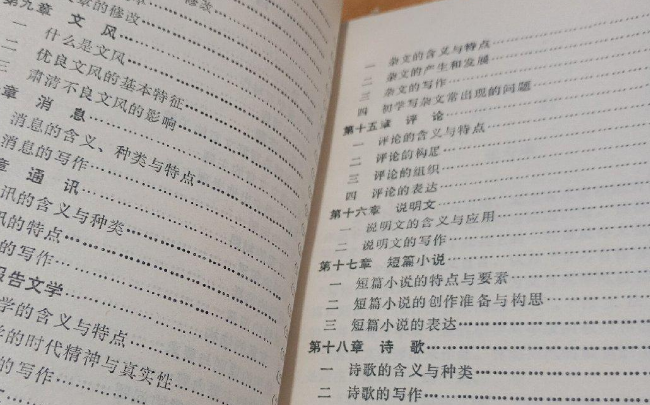 章的修改
第九章 文 风
一 什么是文风
二 优良文风的基本特征
三 肃清不良文风的影响
章 消 息
消息的含义、种类与特点
消息的写作
章 通 讯
讯的含义与种类
讯的特点
的写作
报告文学
学的含义与特点
学的时代精神与真实性
的写作
一 杂文的含义与特点
二 杂文的产生和发展
三 杂文的写作
四 初学写杂文常出现的问题
第十五章 评 论
一 评论的含义与特点
二 评论的构思
三 评论的组织
四 评论的表达
第十六章 说明文
一 说明文的含义与应用
二 说明文的写作
第十七章 短篇小说
一 短篇小说的特点与要素
二 短篇小说的创作准备与构思
三 短篇小说的表达
第十八章 诗 歌
一 诗歌的含义与种类
二 诗歌的写作